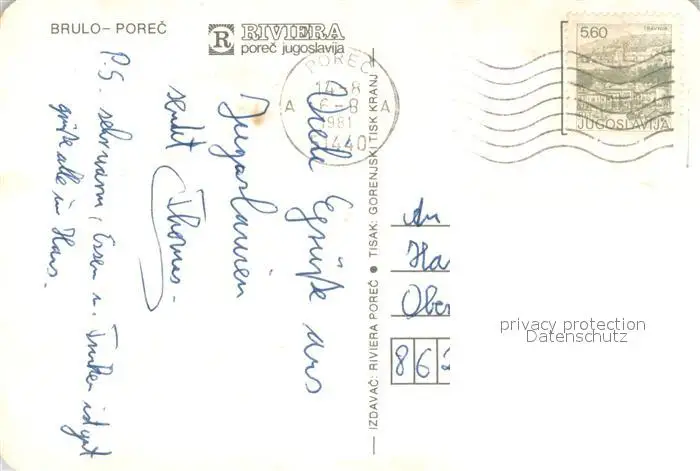 BRULO – POREČ
R RIVIERA
poreč jugoslavija
5,60
TRAVNIK
JUGOSLAVIJA
POREČ
14-8
A 6-8 A
1981
1440
Viele Grüße aus
Jugoslawien
sendet
Thomas.
P.S. sehr warm, Essen u. Trinken ist gut
grüße alle im Haus.
IZDAVAČ: RIVIERA POREČ ● TISAK: GORENJSKI TISK KRANJ
An
Ha
Ober
86
privacy protection
Datenschutz